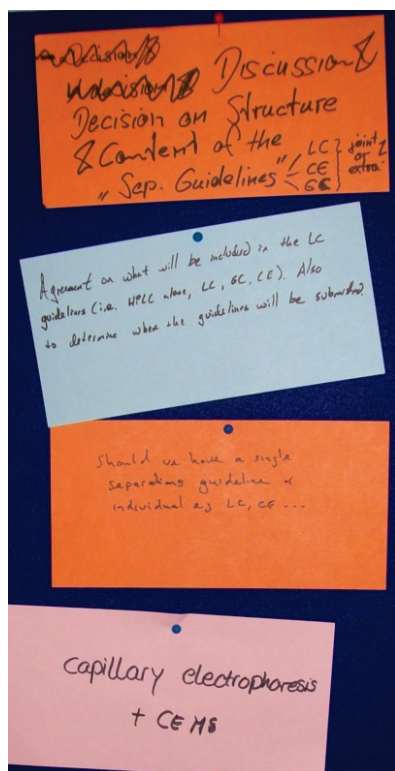 Discussion &
Decision on Structure
& Content of the
"Sep. Guidelines" LC CE GC } joint or extra?
Agreement on what will be included in the LC
guidelines (i.e. HPLC alone, LC, GC, CE). Also
to determine when the guidelines will be submitted.
Should we have a single
separations guideline or
individual e.g LC, CE ...
Capillary electrophoresis
+ CE MS